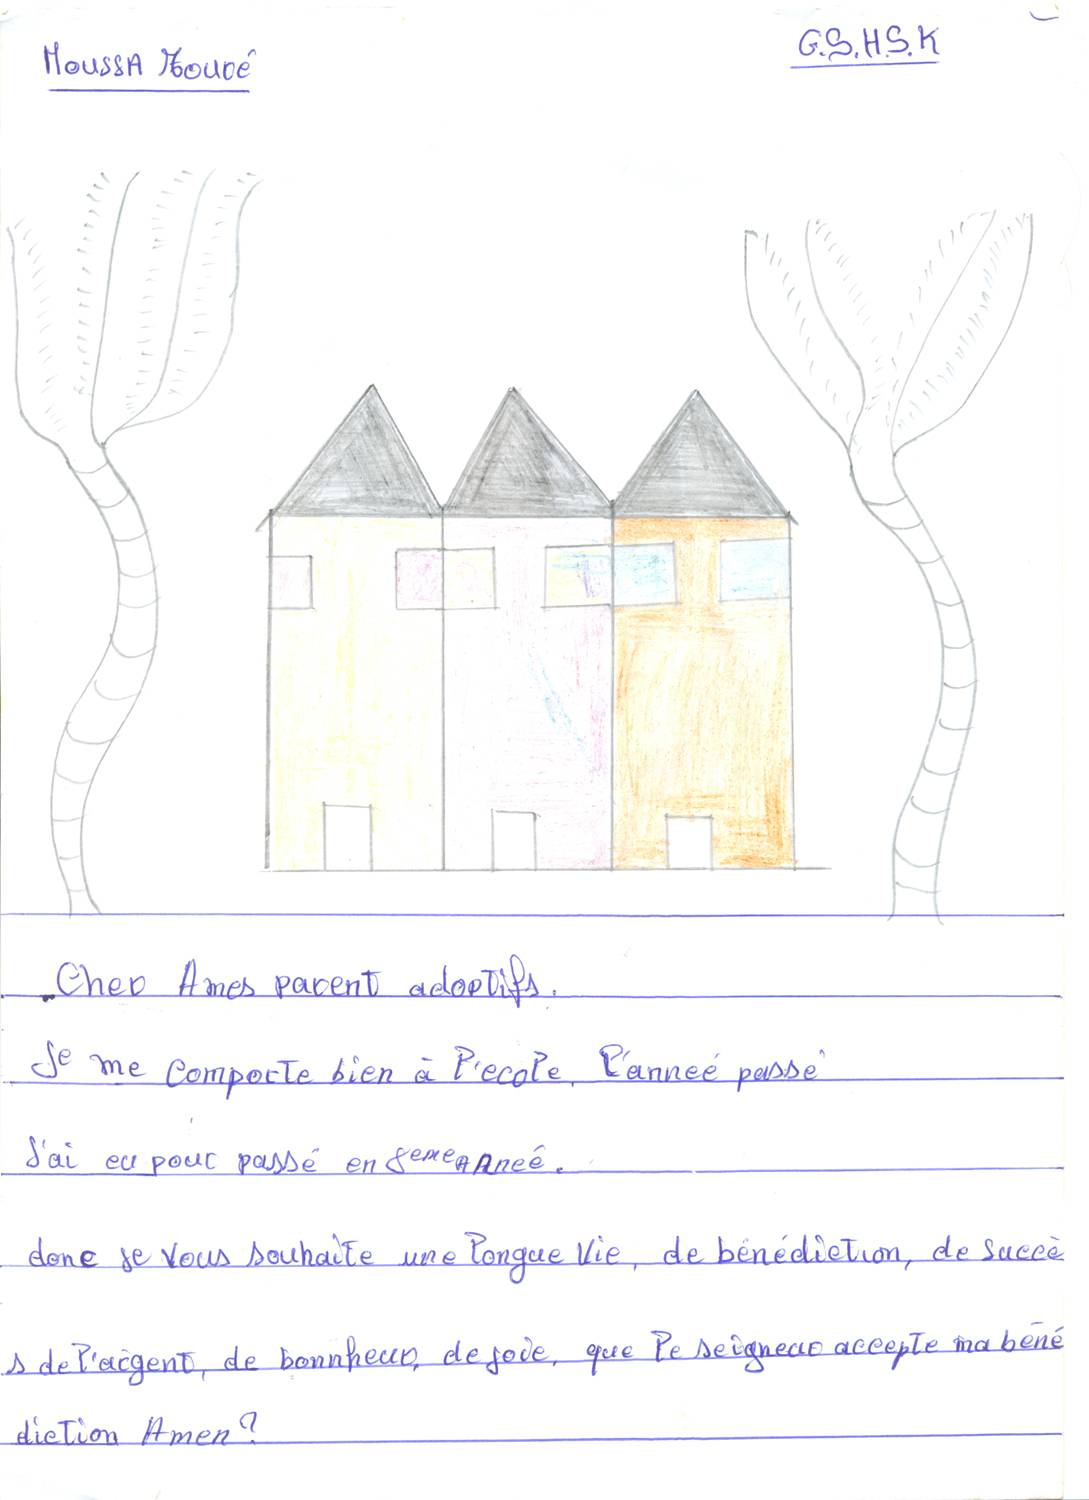 Moussa Touré
G.S.H.S.K
Cher Ames parent adoptifs.
Je me comporte bien à l'ecole, l'anneé passé
J'ai eu pour passé en 8eme Anneé.
donc je vous souhaite une longue vie, de bénédiction, de succè
s de l'argent, de bonnheur, de joie, que le seigneur accepte ma béné
diction Amen?